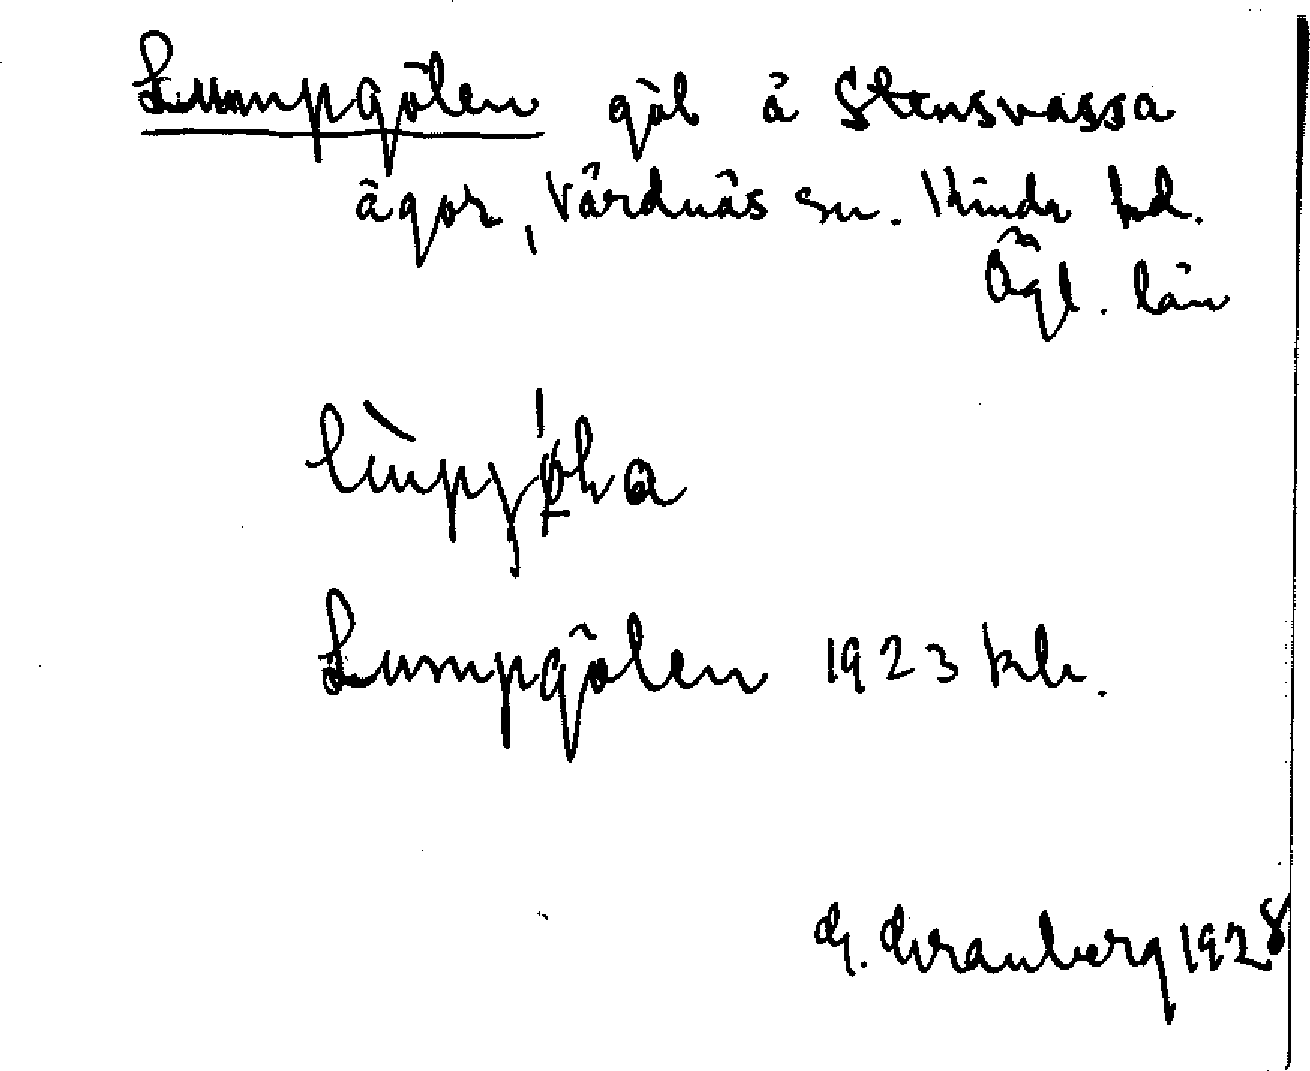 Lumpgölen göl å Stensvassa
ägor, Vårdnäs sn. Kinda hd.
Ögl. län
Lumpgölen 1923 kh.
G. Granberg 1928